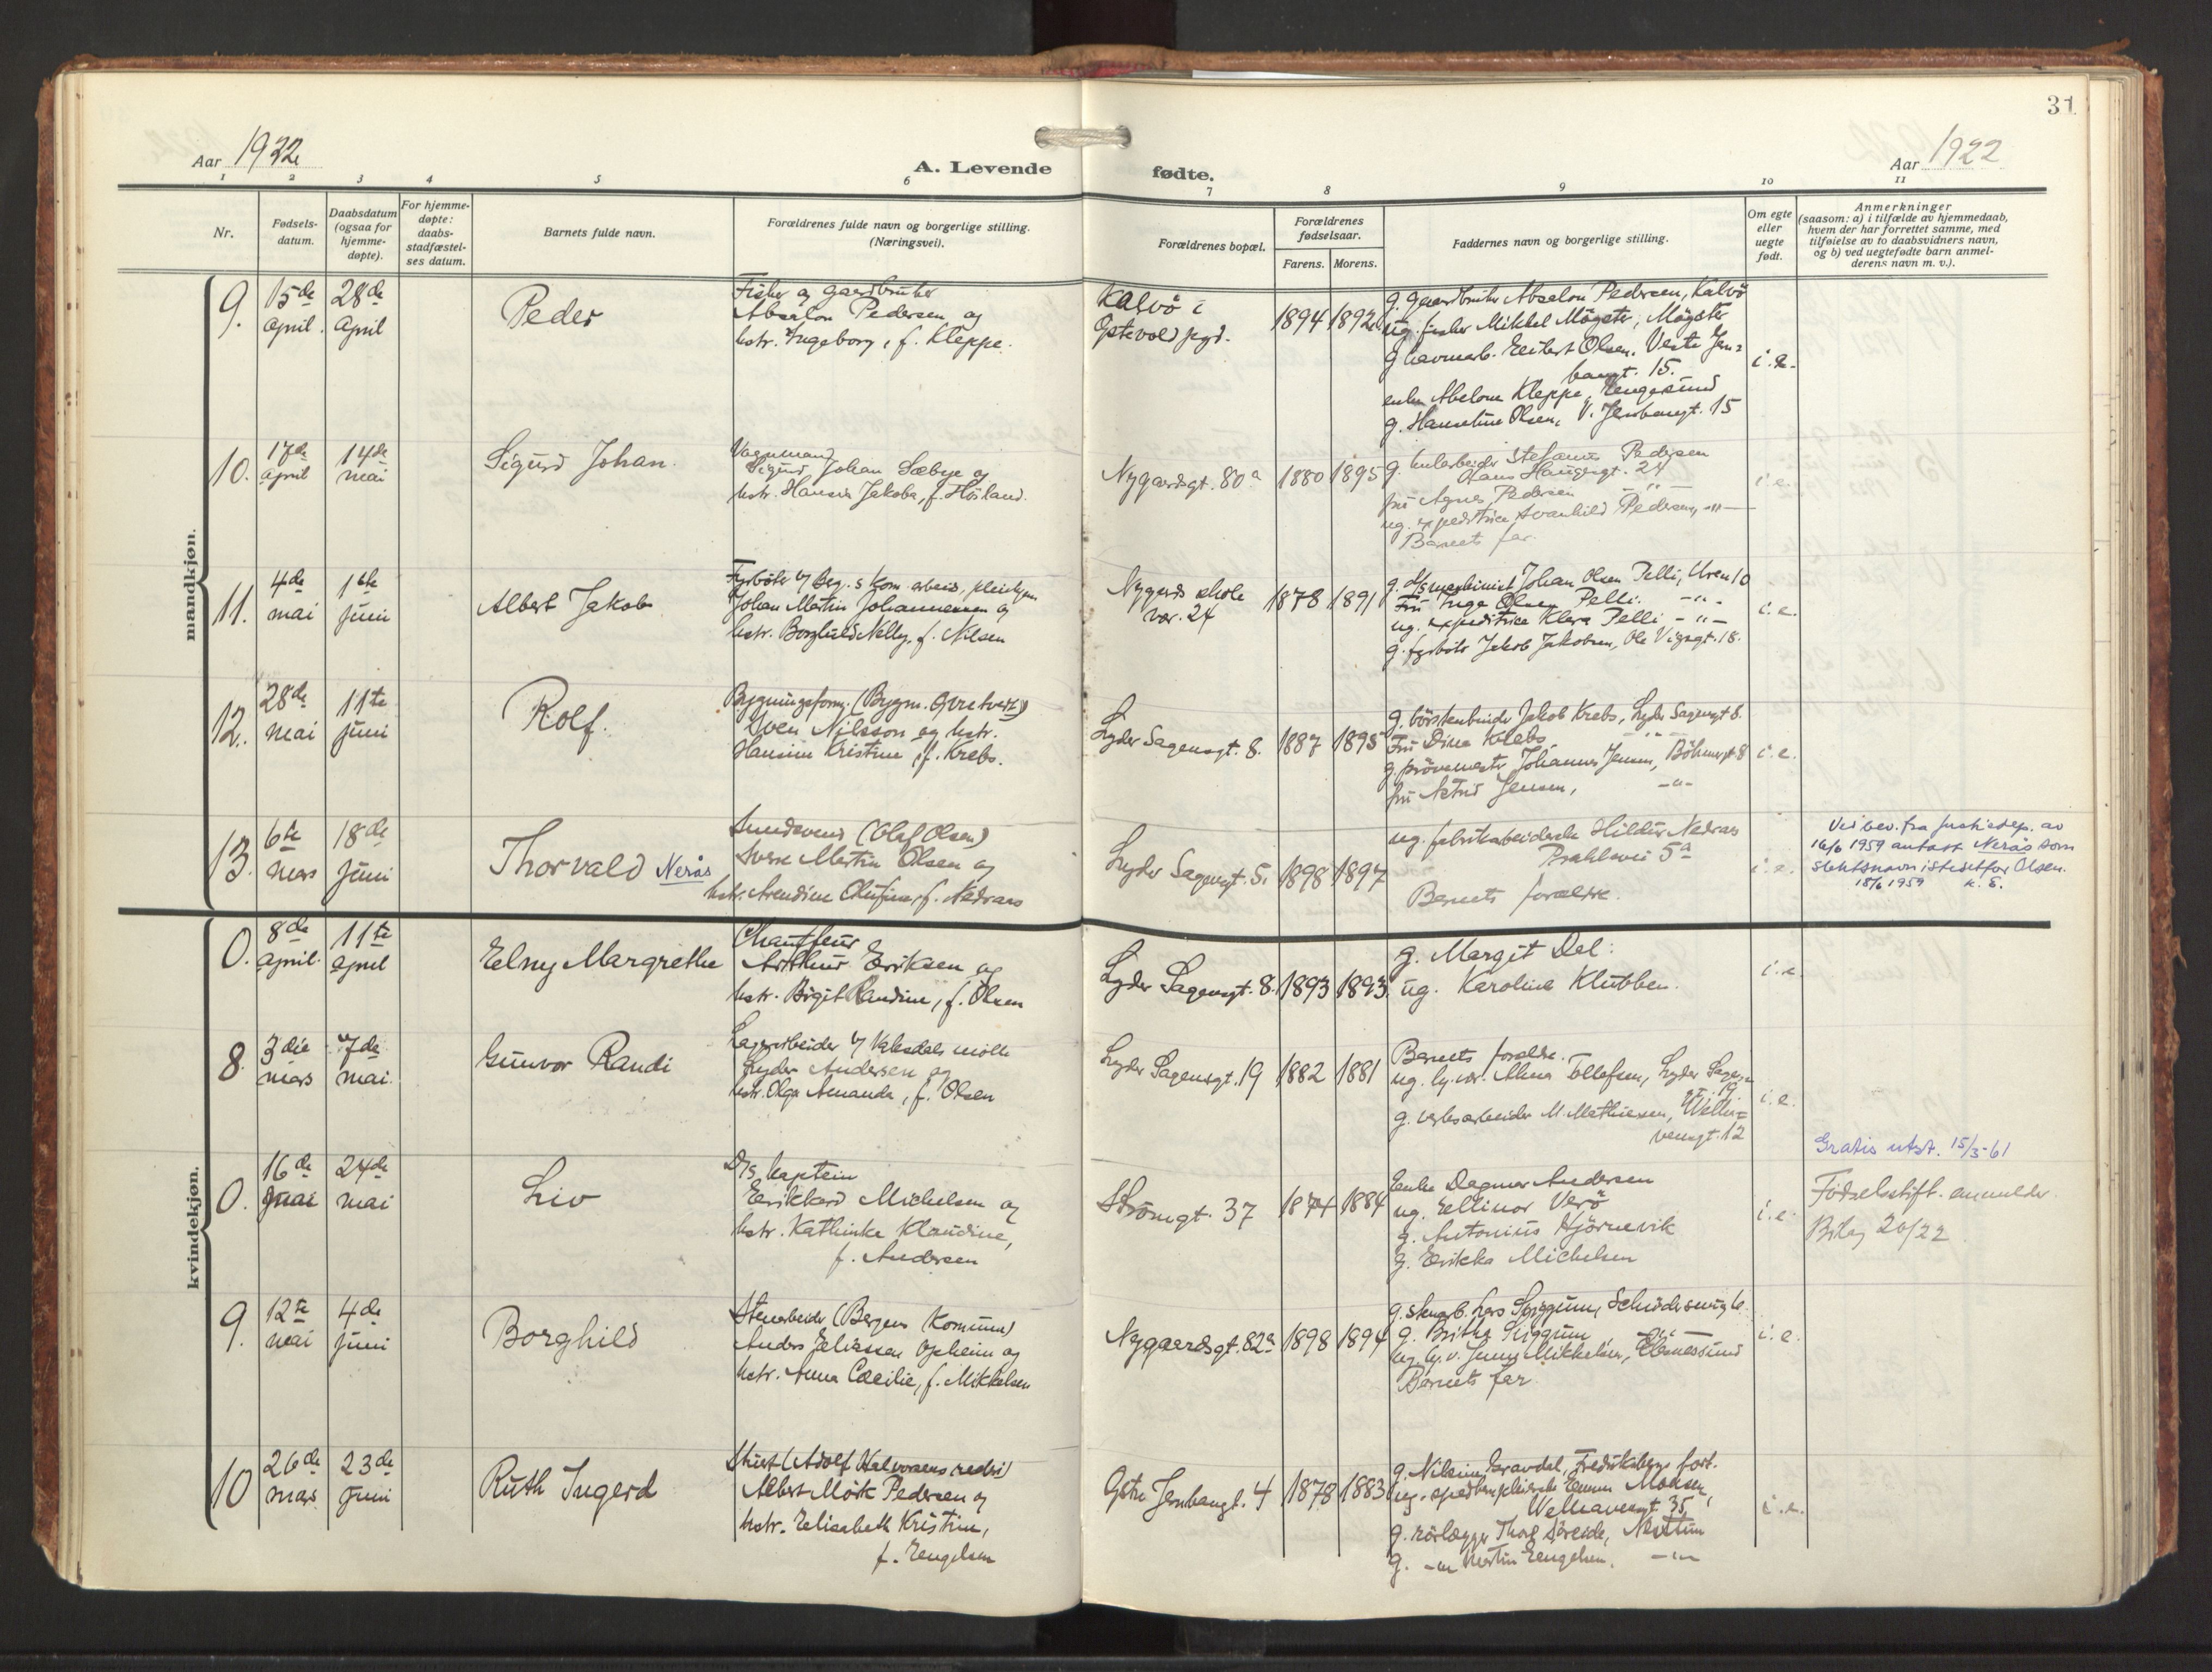 31
Aar 1922
A. Levende
fødte.
Aar 1922
1 2 3 4 5 6 7 8 9 10 11
Nr.
Fødsels-
datum.
Daabsdatum
(ogsaa for
hjemme-
døpte).
For hjemme-
døpte:
daabs-
stadfæstel-
ses datum.
Barnets fulde navn.
Forældrenes fulde navn og borgerlige stilling.
(Næringsvei).
Forældrenes bopæl.
Forældrenes
fødselsaar.
Farens. Morens.
Faddernes navn og borgerlige stilling.
Om egte
eller
uegte
født.
Anmerkninger
(saasom: a) i tilfælde av hjemmedaab,
hvem der har forrettet samme, med
tilføielse av to daabsvidners navn,
og b) ved uegtefødte barn anmel-
derens navn m. v.).
mandkjøn.
9.
15de
april.
28de
April
Peder
Fisker og gaardbruker
Absalon Pedersen og
hstr. Ingeborg, f. Kleppe.
Kalvö i
Østevold pgd.
1894 1892
g. gaardbruker Absalon Pedersen, Kalvö
ug. fisker Mikkel Mögster, Mögster
g. havnearb. Olsen, Vestre Jern=
bangt. 15.
enke Abelone Kleppe,
g. Hanseline Olsen, V. Jernbanegt. 15
i.e.
10.
17de
april
14de
mai
Sigurd Johan.
Vognmand
Sigurd Johan Sæbye og
hstr. Hansia Jakoba, f. Höiland.
Nygaardsgt. 80a
1880 1895
g. Stefanus Pedersen
Hans Haugesgt. 24
fru Agnes Pedersen -"-
ug. expeditrice Svanhild Pedersen, -"-
Barnets far.
i.e.
11.
4de
mai
1ste
juni
Albert Jakob
Fyrböter v/ Beg. s kom. arbeid,
Johan Martin Johannessen og
hstr. Borghild Nelly, f. Nilsen
Nygards skole
vær. 24
1878 1891
g. d/s maskinist Johan Olsen Pelli, Uren 10
Fru Inga Olsen Pelli. -"-
ug. expeditrice Klara Pelli -"-
g. fyrböter Jakob Jakobsen, Ole Vigsgt. 18.
i.e.
12.
28de
mai
11te
juni
Rolf.
Bygningsform. (Bygm. Gvretvert)
Sven Nilsson og hstr.
Hansine Kristine, f. Krebs.
Lyder Sagensgt. 8.
1887 1895
g. börstenbinder Jakob Krebs, Lyder Sagensgt 8.
Fru Dina Krebs, -"-
g. prövemester Johannes Jensen, Böhmergt. 8
fru Astrid Jensen, -"-
i.e.
13.
6te
mars
18de
juni
Thorvald Nerås
Smedsvend (Olaf Olsen)
Sverre Martin Olsen og
hstr. Arendine Olufine, f. Nedraas
Lyder Sagensgt. 5.
1898 1897
ug. fabrikarbeiderske Hildur Nedraas
5a
Barnets forældre.
i.e.
Ved bev. fra Justisdep. av
16/6 1959 antatt Nerås som
slektsnavn istedetfor Olsen.
18/6 1959 K. E.
kvindekjøn.
0.
8de
april.
11te
april
Elny Margrethe
Chauffeur
Arthur Eriksen og
hstr. Birgit Randine, f. Olsen
Lyder Sagensgt. 8.
1893 1893.
g. Margit Dal.
ug. Karoline Klubben.
i.e.
8.
3die
mars
7de
mai.
Gunvor Randi
Lagerarbeider v/ Vaksdals mölle
Lyder Andersen og
hstr. Olga Amanda, f. Olsen
Lyder Sagensgt. 19
1882 1881
Barnets forældre.
ug. Alma Tollefsen, Lyder Sagens
gt. 19.
g. verksarbeider M. Mathiesen, Welha=
vensgt. 12
i.e.
Gratis utst. 15/3-61
0.
16de
mai
24de
mai
Liv
D/s kaptein
Erikkard Michelsen og
hstr. Kathinka Klaudine,
f. Andersen
Strömgt. 37
1874 1884
Enke Dagmar Andersen
ug. Ellinor Verö
g. Antonius Hjörnevik
g. Erikka Michelsen
i.e.
Födselsstift. anmelder.
Bilag 20/22
9.
12te
mai
4de
juni
Borghild
Stenarbeider (Bergens Kommune)
Anders Eliassen Opheim og
hstr. Anna Cæcilie, f. Mikkelsen
Nygaardsgt. 82a
1898 1894
g. stenarb. Lars Spiggum,
g. Britha Spiggum -"-
ug. hj.v. Jenny Mikkelsen,
Barnets far
i.e.
10
26de
mars
23de
juni
Ruth Ingerd
Stuert (Adolf Halvorsens rederi)
Albert Mörk Pedersen og
hstr. Elisabeth Kristine,
f. Engelsen
Östre Jernbanegt. 4
1878 1883
g. Nilsine Gravdal, Fredriksbergs fort.
ug. Emma Monsen,
Welhavensgt. 35,
g. rörlægger Thorl. Söreide, Nesttun
g. -"- Martin Engelsen. -"-
i.e.